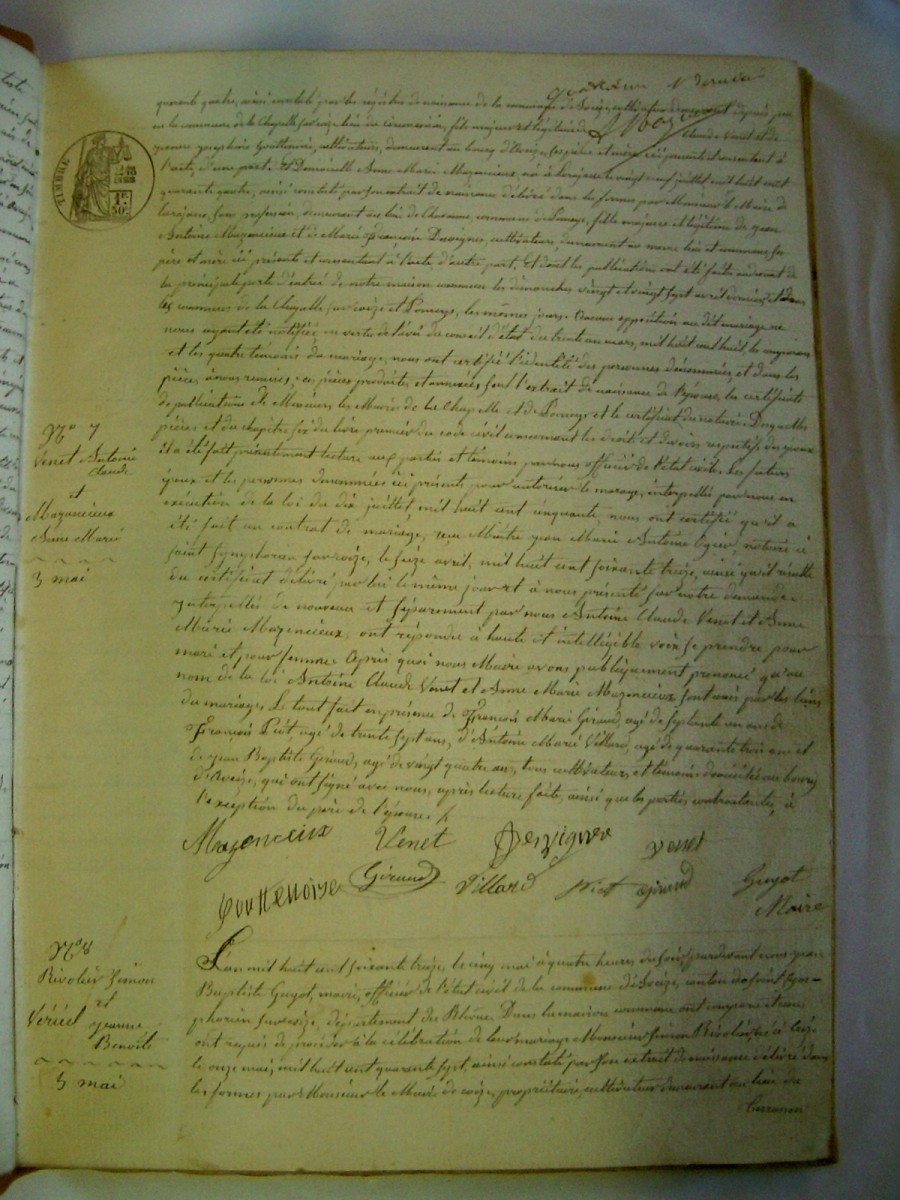 quarante quatre, ainsi constaté par les registres de naissance de la commune de
en la commune de la Chapelle sur coize lieu de fils majeur et légitime de Claude Venet et de
cultivateurs, demeurant au bourg d'Aveize, ses père et mère ici présents et consentant à
TIMBRE
l'acte, d'une part. Et Demoiselle Anne Marie Mazencieux née à Larajasse le vingt neuf juillet mil huit cent
quarante quatre, ainsi constaté par son extrait de naissance délivré dans les formes par Monsieur le Maire de
Larajasse, sans profession, demeurant au lieu de commune de Pomeys, fille majeure et légitime de jean
Antoine Mazencieux et de Marie Françoise cultivateurs, demeurant au même lieu et commune ses
père et mère ici présents et consentant à l'acte d'autre part, et dont les publications ont été faites au devant de
la principale porte d'entrée de notre maison commune les dimanches vingt et vingt sept avril dernier, et dans
les communes de la Chapelle sur coize et Pomeys, les mêmes jours. Aucune opposition au dit mariage ne
nous ayant été notifiée, en vertu de l'avis du conseil d'état du trente un mars, mil huit cent huit, les conjoints
et les quatre témoins du mariage, nous ont certifié l'identité des personnes dénommées, et dans les
pièces à nous remises. ces pièces produites et annexées sont l'extrait de naissance de l'épouse, les certificats
de publications de Messieurs les Maires de la Chapelle et de Pomeys et le certificat du notaire. Desquelles
pièces et du chapitre six du livre premier du code civil concernant les droits et devoirs respectifs des époux
il a été fait présentement lecture aux parties et témoins par nous officier de l'état civil. Les futurs
époux et les personnes dénommées ici présents pour autoriser le mariage, interpellés par nous en
exécution de la loi du dix juillet mil huit cent cinquante, nous ont certifié qu'il a
été fait un contrat de mariage, reçu Maître jean Marie Antoine Ogier, notaire à
saint symphorien sur coize, le seize avril, mil huit cent soixante treize, ainsi qu'il résulte
du certificat délivré par lui le même jour et à nous présenté sur notre demande.
Interpellés de nouveau et séparément par nous Antoine Claude Venet et Anne
Marie Mazencieux, ont répondre à haute et intelligible voix se prendre pour
mari et pour femme. Après quoi nous Maire avons publiquement prononcé qu'au
nom de la loi Antoine Claude Venet et Anne Marie Mazencieux sont unis par les liens
du mariage. Le tout fait en présence de François Marie Giraud, agé de septante un ans de
François Piot agé de trente sept ans, d'Antoine Marie Villard, agé de quarante trois ans et
de jean Baptiste Giraud, agé de vingt quatre ans, tous cultivateurs, et témoins domiciliés au bourg
d'Aveize, qui ont signé avec nous, après lecture faite, ainsi que les parties contractantes, à
l'exception du père de l'épouse.
No 7
Venet Antoine
claude
et
Mazencieux
Anne Marie
3 mai
Mazencieux Venet Dervigner venet
Gouttenoire Giraud Villard Piot Giraud Guyot
Maire
No 8
Rivolier Simon
et
Vériel jeanne
Benoîte
5 mai
L'an mil huit cent soixante treize, le cinq mai à quatre heures du soir, pardevant nous jean
Baptiste Guyot, maire, officier de l'état civil de la commune d'Aveize, canton de saint sym-
phorien sur coize, département du Rhône. Dans la maison commune ont comparu et nous
ont requis de procéder à la célébration de leur mariage Monsieur Simon Rivolier, né à coize
le onze mai, mil huit cent quarante sept, ainsi constaté par son extrait de naissance délivré dans
les formes par Monsieur le Maire de coize, propriétaire, cultivateur demeurant au lieu du